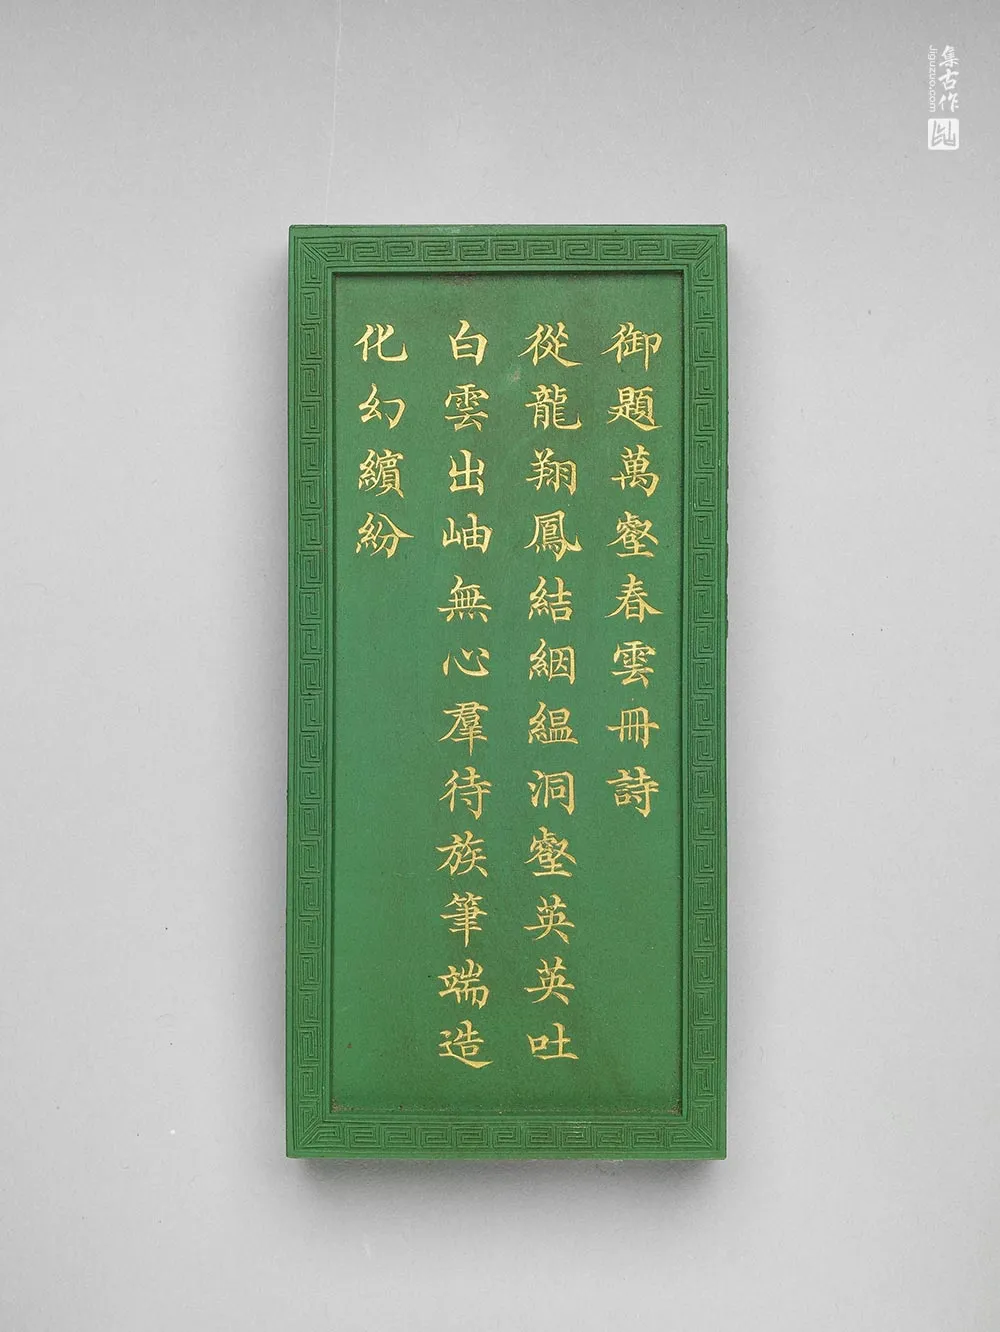 御題萬壑春雲冊詩
從龍翔鳳結絪緼洞壑英英吐
白雲出岫無心羣待族筆端造
化幻繽紛
集古作
Jiguzuo.com